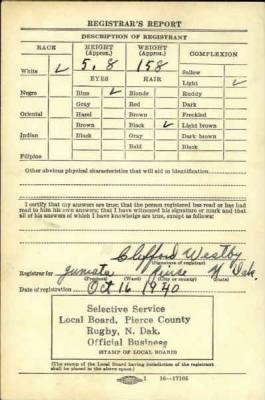 REGISTRAR'S REPORT
DESCRIPTION OF REGISTRANT
RACE
HEIGHT (Approx.)
WEIGHT (Approx.)
COMPLEXION
White ✓
5.8
158
Sallow
EYES
HAIR
Light ✓
Negro
Blue ✓
Blonde
Ruddy
Gray
Red
Dark
Oriental
Hazel
Brown
Freckled
Brown
Black ✓
Light brown
Indian
Black
Gray
Dark brown
Bald
Black
Filipino
Other obvious physical characteristics that will aid in identification
I certify that my answers are true; that the person registered has read or has had
read to him his own answers; that I have witnessed his signature or mark and that
all of his answers of which I have knowledge are true, except as follows:
Clifford Westby
(Signature of registrar)
Registrar for Juniata Pierce N Dak.
(Precinct) (Ward) (City or county) (State)
Date of registration Oct 16 1940
Selective Service
Local Board, Pierce County
Rugby, N. Dak.
Official Business
STAMP OF LOCAL BOARD
(The stamp of the Local Board having jurisdiction of the registrant
shall be placed in the above space.)
1 16—17105